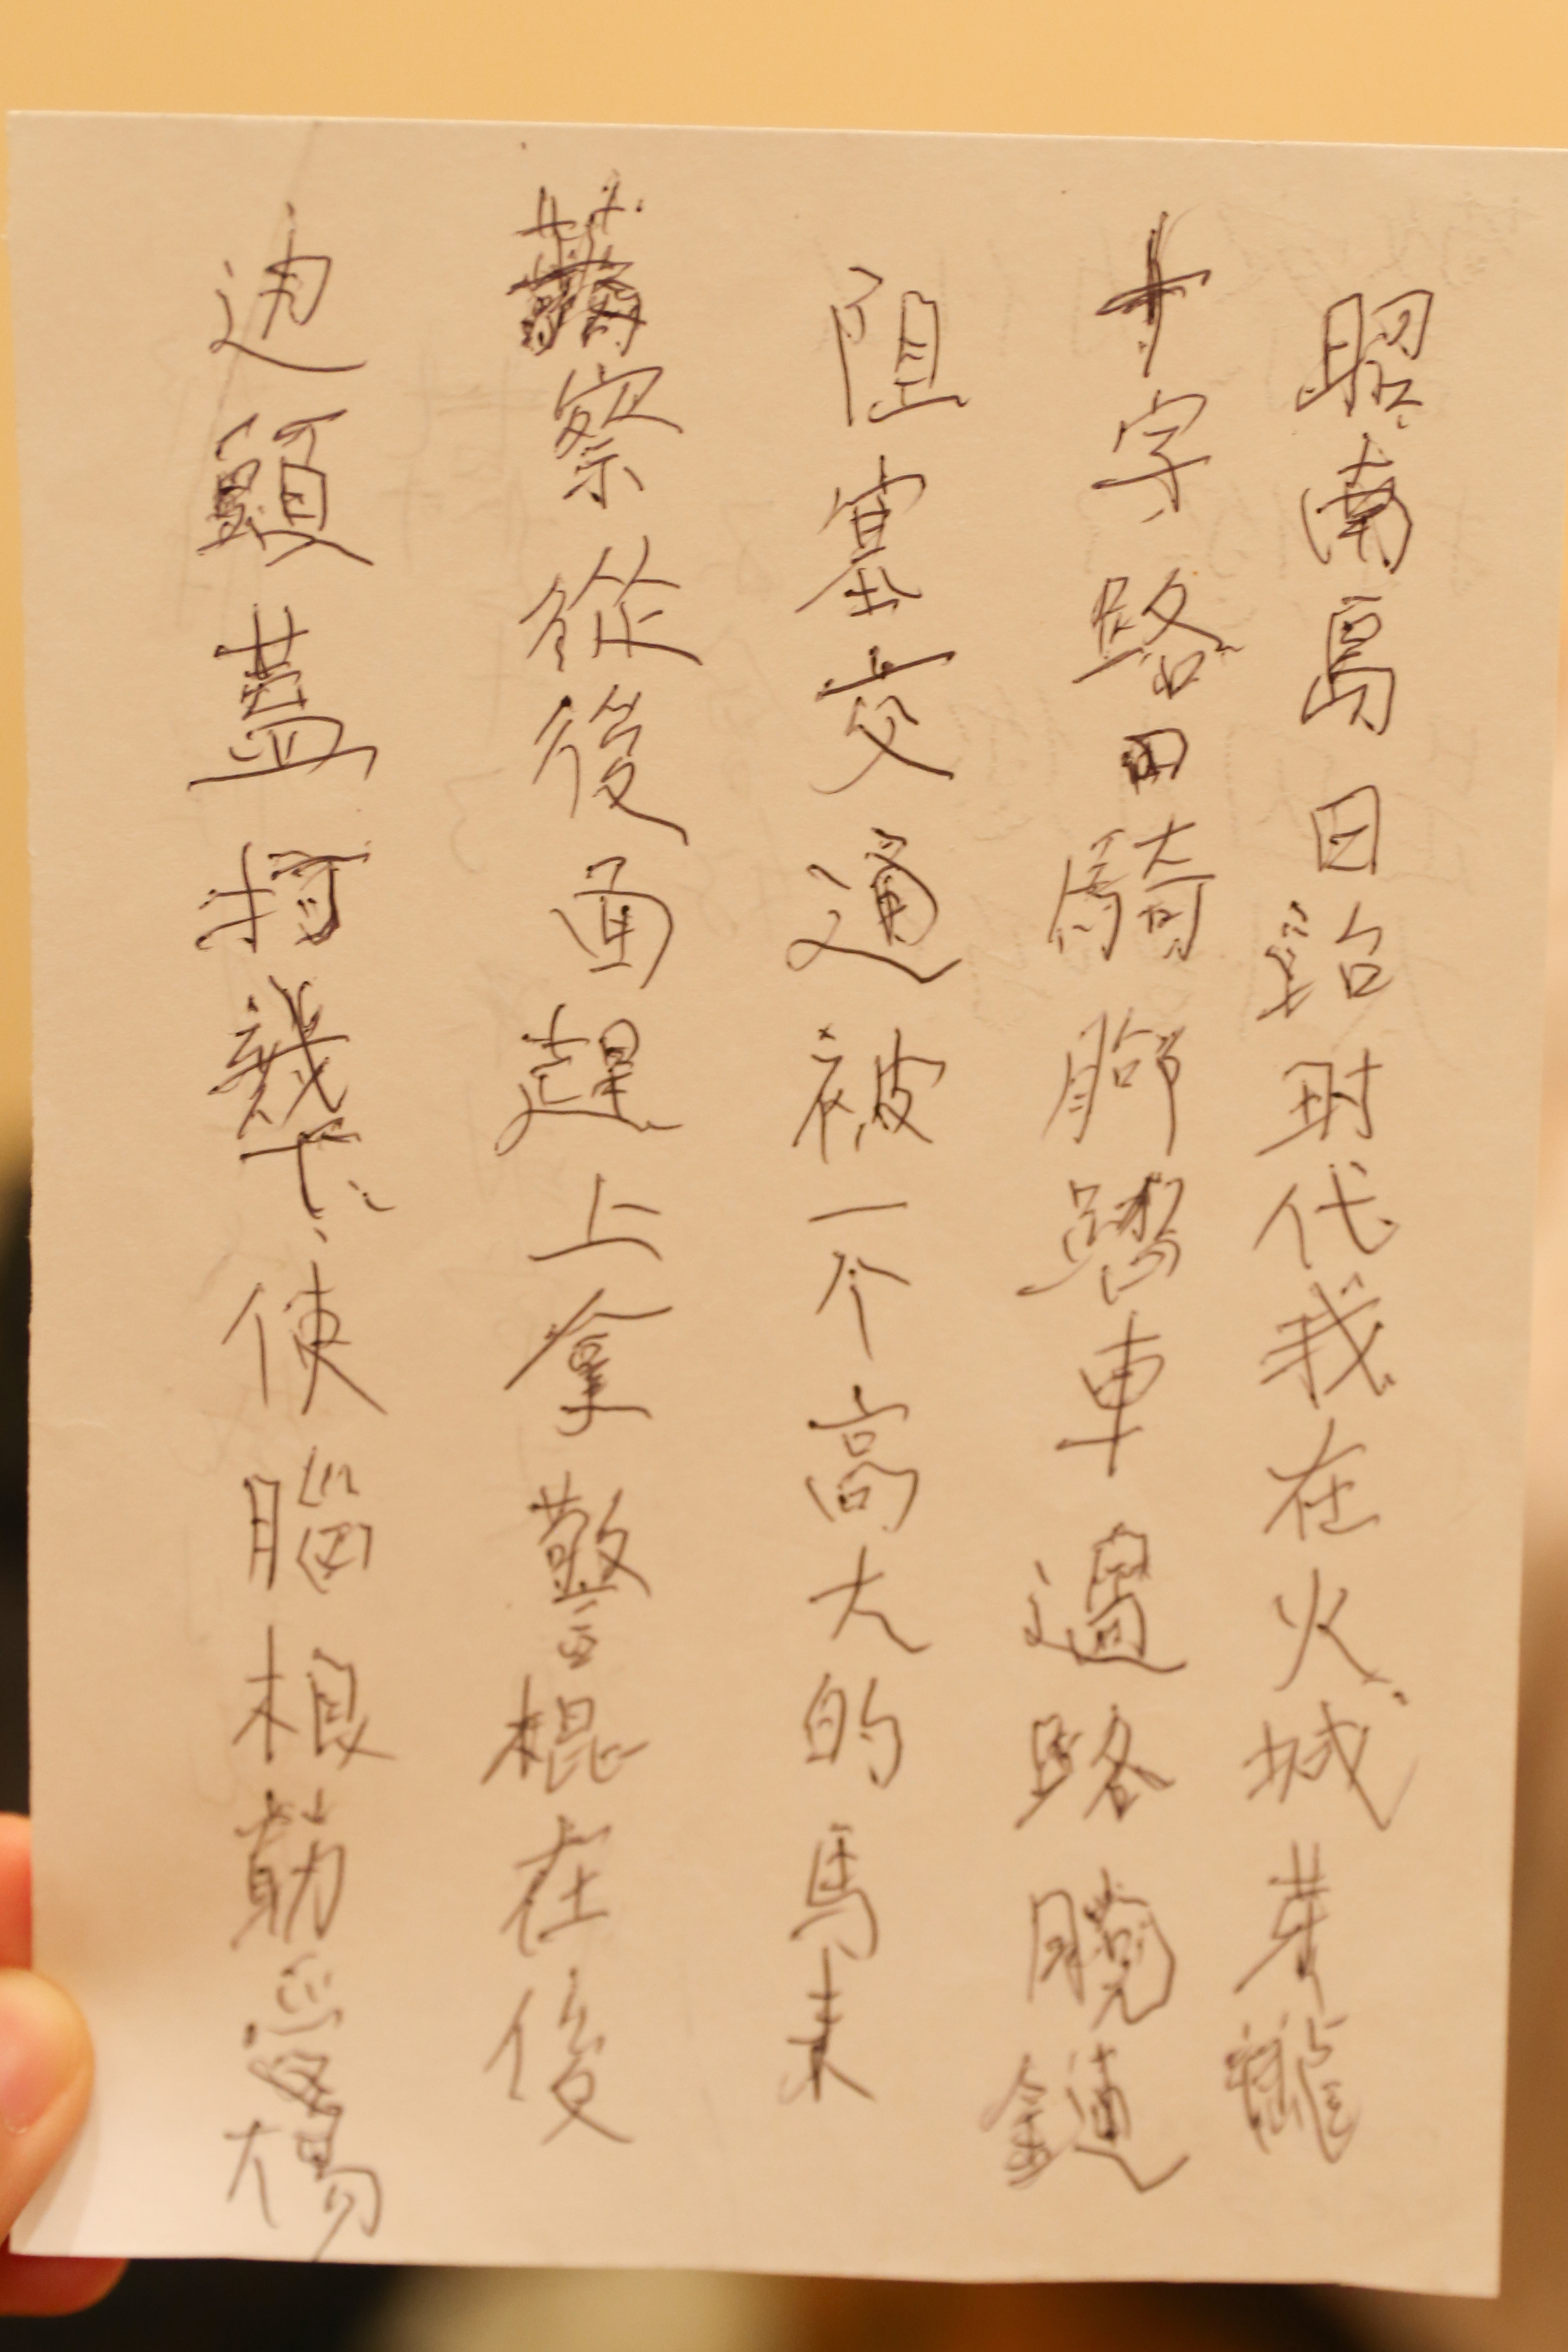 昭南島日治时代我在火城芽籠
十字路口騎脚踏車過路脱鏈
阻塞交通被一个高大的馬来
警察從後面趕上拿警棍在後
边頭蓋打幾下使腦根筋受傷